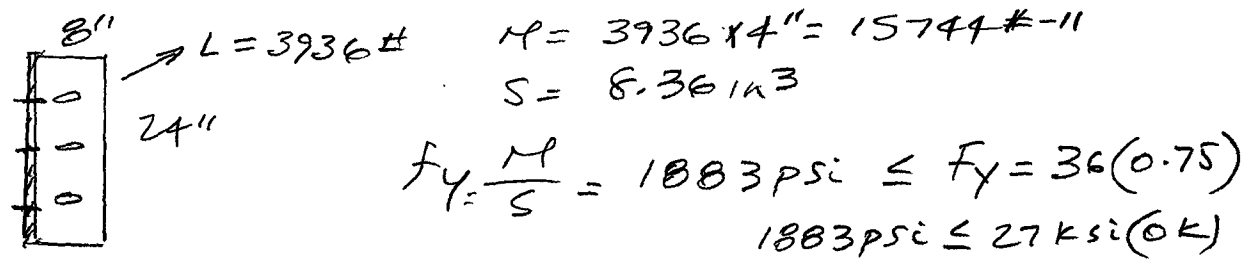 8"
L = 3936#
24"
M = 3936 x 4" = 15744#-"
S = 8.36 in3
fy = M/S = 1883 psi ≤ Fy = 36(0.75)
1883 psi ≤ 27 ksi (OK)